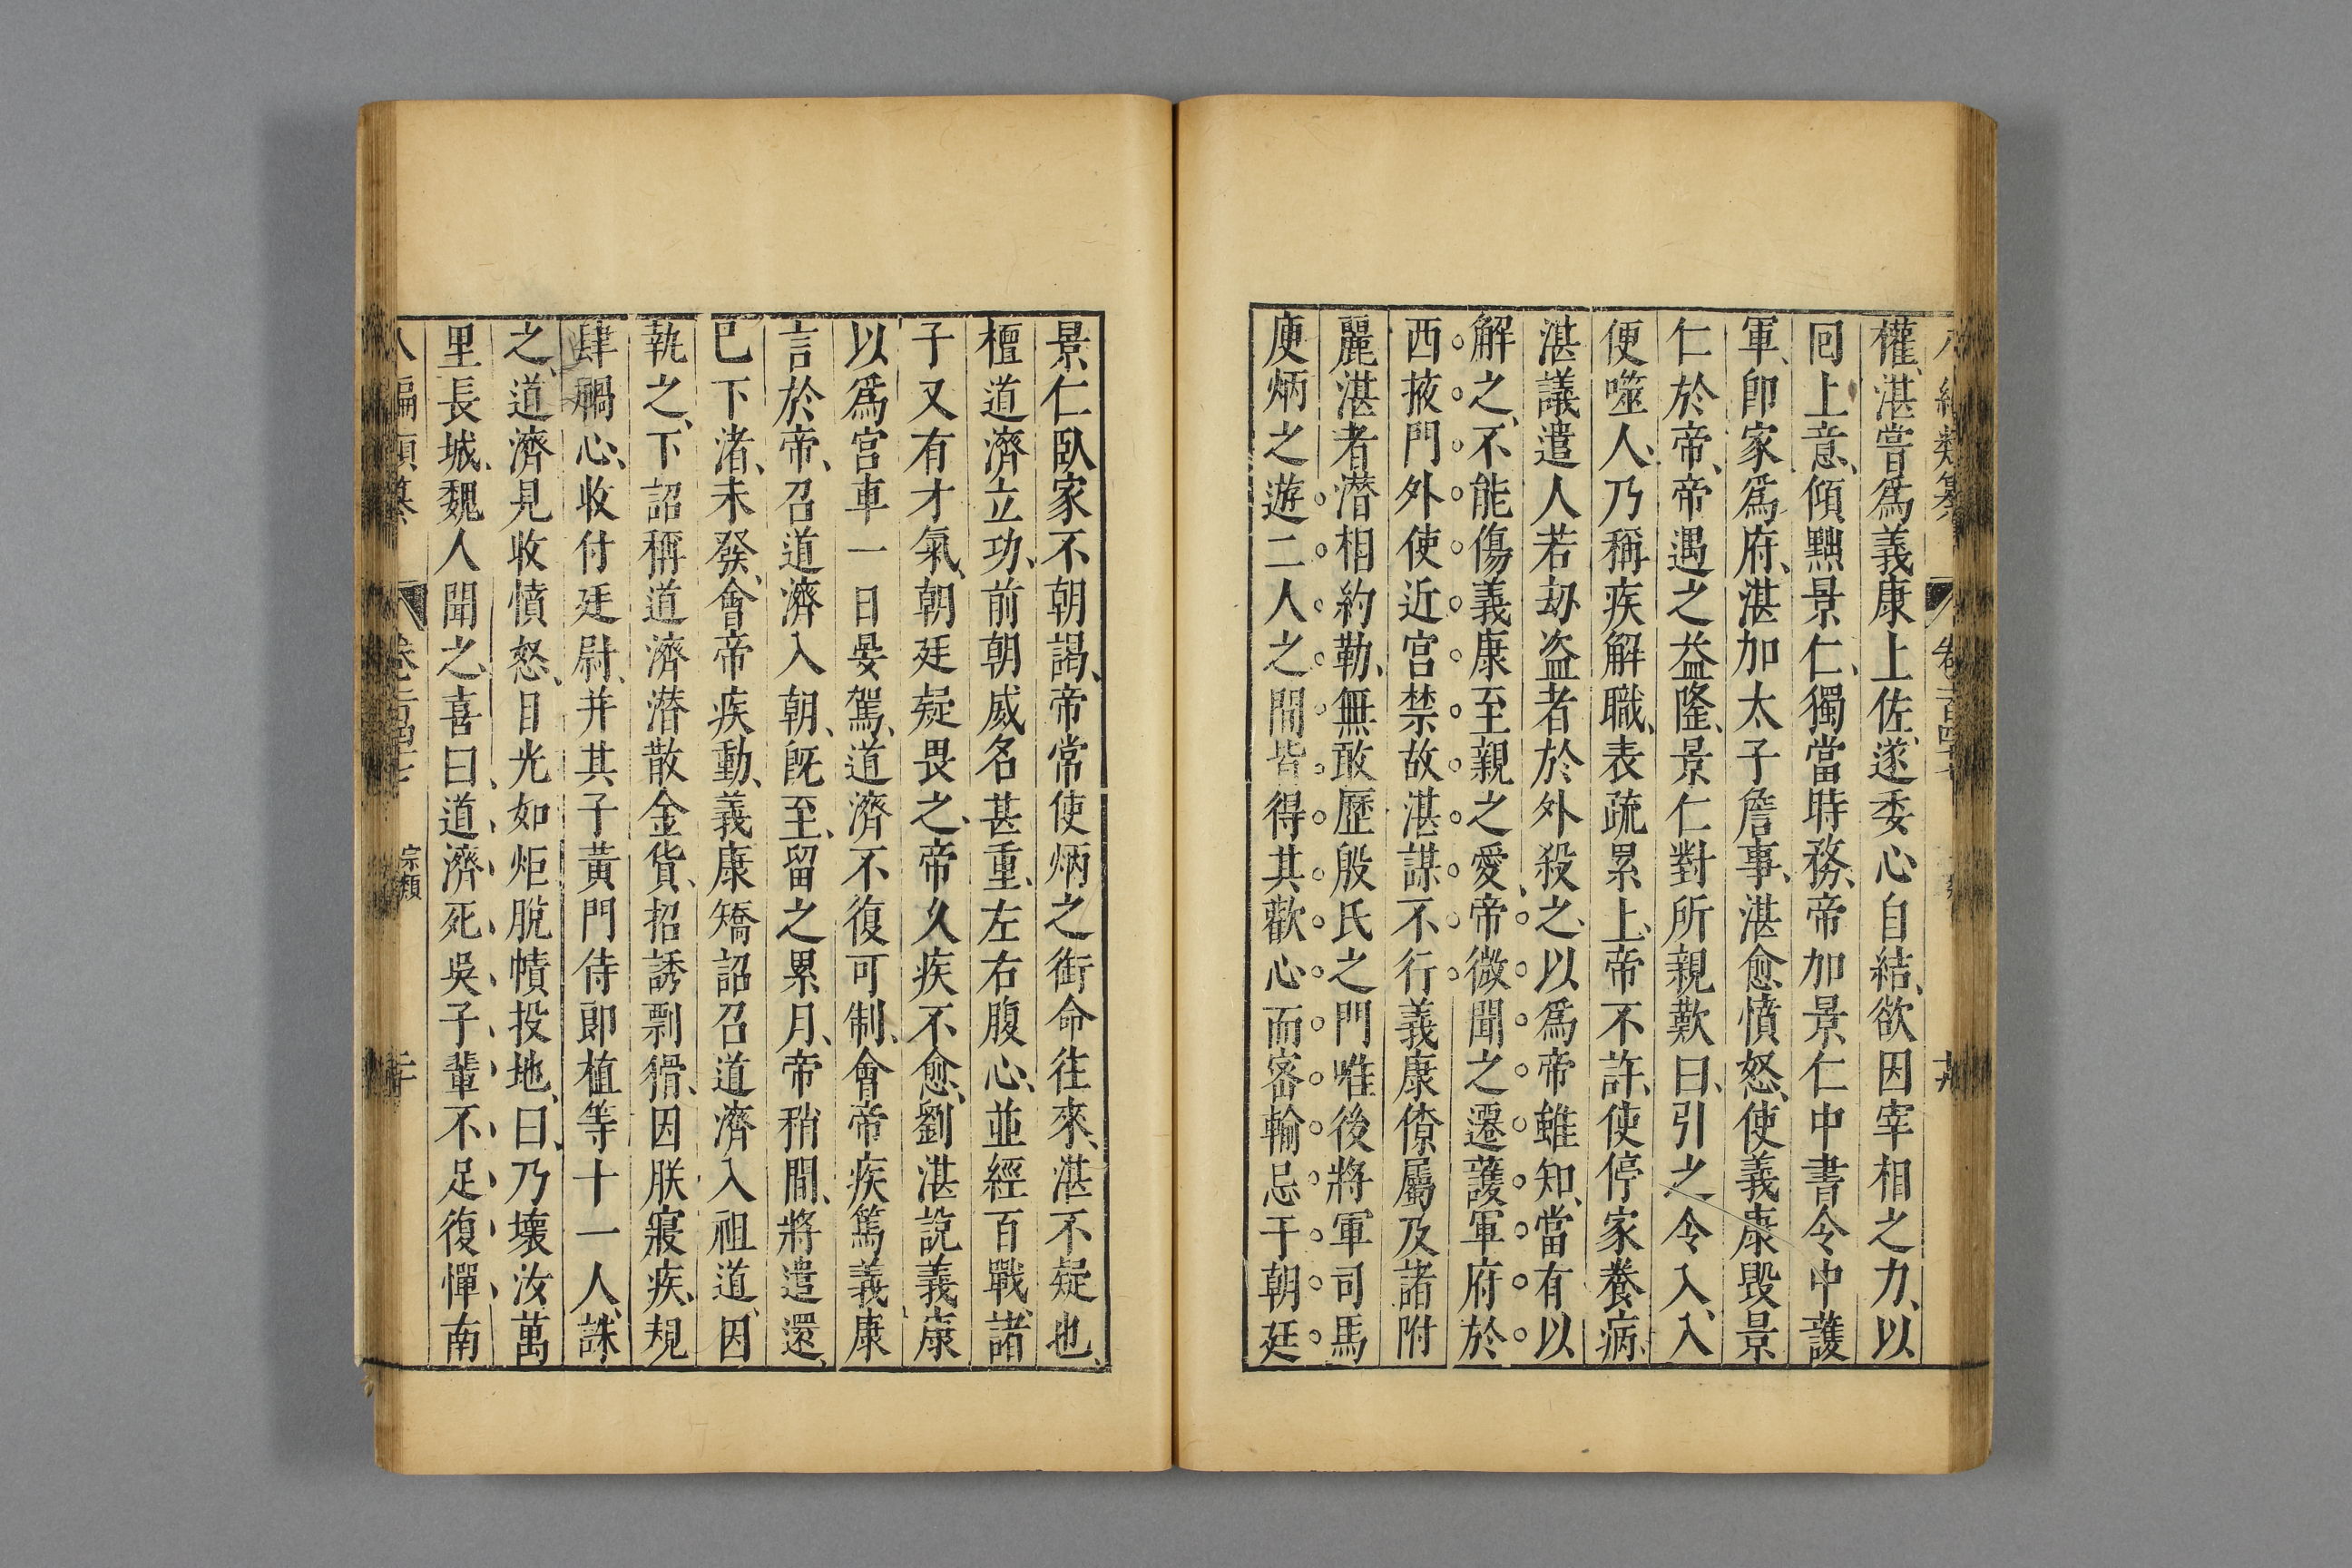 權湛嘗爲義康上佐遂委心自結欲因宰相之力以
囘上意傾黜景仁獨當時務帝加景仁中書令中護
軍卽家爲府湛加太子詹事湛愈憤怒使義康毁景
仁於帝帝遇之益隆景仁對所親歎曰引之令入入
便噬人乃稱疾解職表疏累上帝不許使停家養病
湛議遣人若刼盗者於外殺之以爲帝雖知當有以
解之不能傷義康至親之愛帝微聞之遷護軍府於
西掖門外使近宮禁故湛謀不行義康僚屬及諸附
麗湛者潜相約勒無敢歷殷氏之門唯後將軍司馬
庾炳之遊二人之間皆得其歡心而密輸忠于朝廷
景仁臥家不朝謁帝常使炳之銜命往來湛不疑也
檀道濟立功前朝威名甚重左右腹心並經百戰諸
子又有才氣朝廷疑畏之帝久疾不愈劉湛說義康
以爲宮車一日晏駕道濟不復可制會帝疾篤義康
言於帝召道濟入朝旣至留之累月帝稍間將遣還
已下渚未發會帝疾動義康矯詔召道濟入祖道因
執之下詔稱道濟潜散金貨招誘剽猾因朕寢疾規
肆禍心收付廷尉并其子黃門侍郎植等十一人誅
之道濟見收憤怒目光如炬脫幘投地曰乃壞汝萬
里長城魏人聞之喜曰道濟死吳子輩不足復憚南
宗類